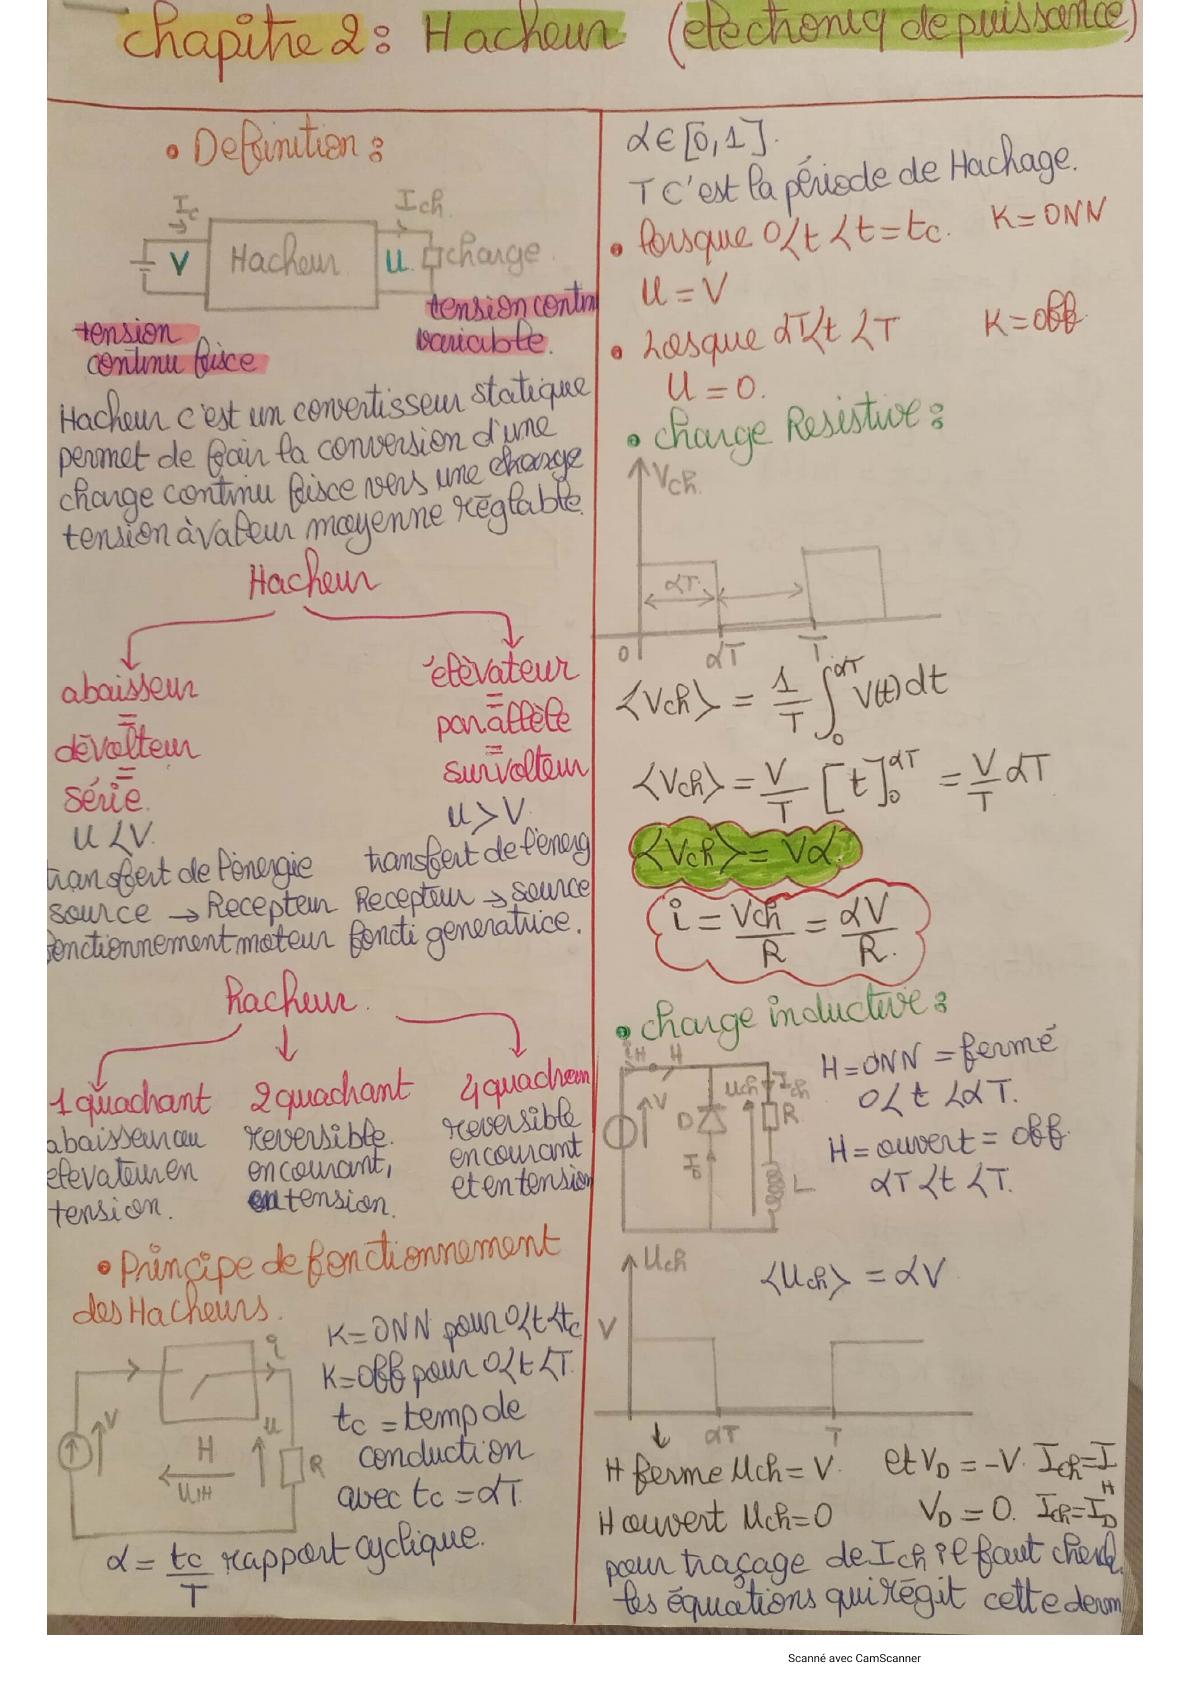 chapitre 2: Hacheur (electroniq de puissance)
• Definition :
Ic
Ich.
V
Hacheur
U
charge
tension contin
variable.
tension
continu fisce
Hacheur c'est un convertisseur statique
permet de fair la conversion d'une
charge continu fisce vers une charge
tension à valeur moyenne réglable.
Hacheur
abaisseur
=
dévolteur
=
série.
U < V.
transfert de l'énergie
source → Recepteur
fonctionnement moteur
élèvateur
=
parallèle
=
survolteur
U > V
transfert de l'énerg
Recepteur → source
foncti generatrice.
hacheur.
1 quadrant
abaisseur ou
elevateur en
tension.
2 quadrant
reversible.
en courant,
en tension.
4 quadran
reversible
en courant
et en tension
• Principe de fonctionnement
des Hacheurs.
i
V
H
UH
u
R
K = ONN pour 0<t<tc
K = Off pour 0<t<T.
tc = temp de
conduction
avec tc = αT.
α = tc/T rapport cyclique.
α ∈ [0,1].
T C'est la période de Hachage.
• lorsque 0<t<t=tc. K = ONN
U = V
• Losque αT<t<T K = off.
U = 0.
• charge Resistive :
Vch.
αT
0 αT T
<Vch> = 1/T ∫₀^αT V(t) dt
<Vch> = V/T [t]₀^αT = V/T αT
<Vch> = Vα.
i = Vch/R = αV/R.
• charge inductive :
iH H
V
D
ID
Uch
Ich
R
L
H = ONN = fermé
0< t <αT.
H = ouvert = off.
αT<t<T.
Uch
<Uch> = αV
V
αT T
H ferme Uch = V. et VD = -V. Ich = IH
H ouvert Uch=0 VD = 0. Ich=ID
pour traçage de Ich il faut cherch
les équations qui régit cette dern
Scanné avec CamScanner